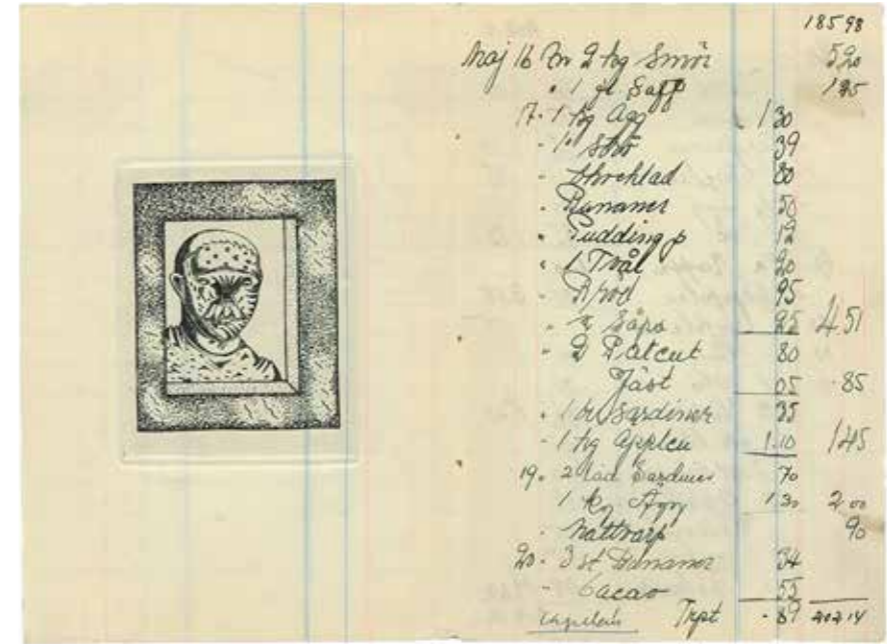 185 98
Maj 16 2 kg Smör 5 20
" 1 fl Saft 1 25
17 - 1 kg Ägg 1 30
- 1 " 39
- 80
- Bananer 50
" Pudding p 12
" 1 Tvål 20
- Bröd 95
" Såpa 25 4.51
- 2 80
Jäst 05 .85
. 1 Sardiner 35
- 1 kg Applen 1.10 1 45
19. 2 Sardiner 70
1 kg Ägg 1.30 2 00
- 90
20 - 3 st Bananer 34
- Cacao 55
Trpt - 89 202 14